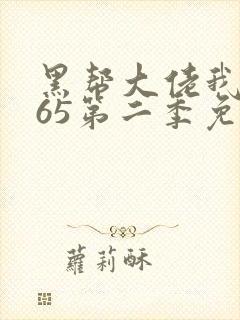 黑帮大佬我
65第二季免
蘿莉酥